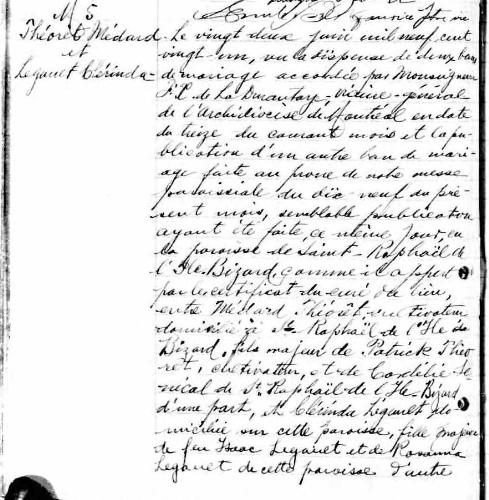 M 5
Théoret Médard
et
Legault Clérinda
Le vingt deux juin mil neuf cent
vingt-un, vu la dispense de deux bans
de mariage accordée par Monseigneur
F. L. de La Durantaye, vicaire-général
de l'Archidiocèse de Montréal en date
du treize du courant mois et la pu-
blication d'un autre ban de mari-
age faite au prone de notre messe
paroissiale du dix-neuf du pré-
sent mois, semblable publication
ayant été faite, ce même jour, en
la paroisse de Saint-Raphaël de
l'Ile-Bizard, comme il appert
par le certificat du curé du lieu,
entre Médard Théorêt, cultivateur
domicilié à St-Raphaël de l'Ile
Bizard, fils majeur de Patrick Théo-
rêt, cultivateur, et de Cordélie Sé-
nécal de St. Raphaël de l'Ile-Bizard
d'une part, et Clérinda Légault do-
miciliée sur cette paroisse, fille majeure
de feu Isaac Legault et de Rosanna
Legault de cette paroisse d'autre